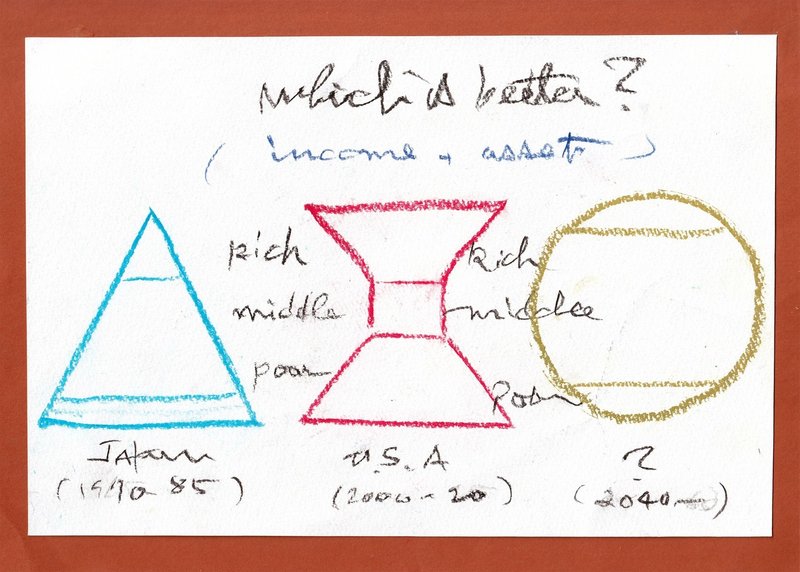 which is better?
(income, asset)
Rich
middle
poor
Rich
middle
Poor
Japan
(1970-85)
U.S.A
(2000-20)
?
(2040-)